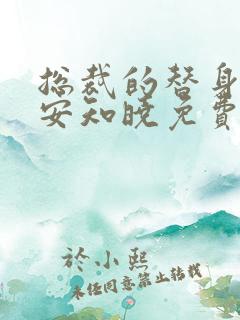 总裁的替身
安知晓免费
於小熙
未经同意禁止转载